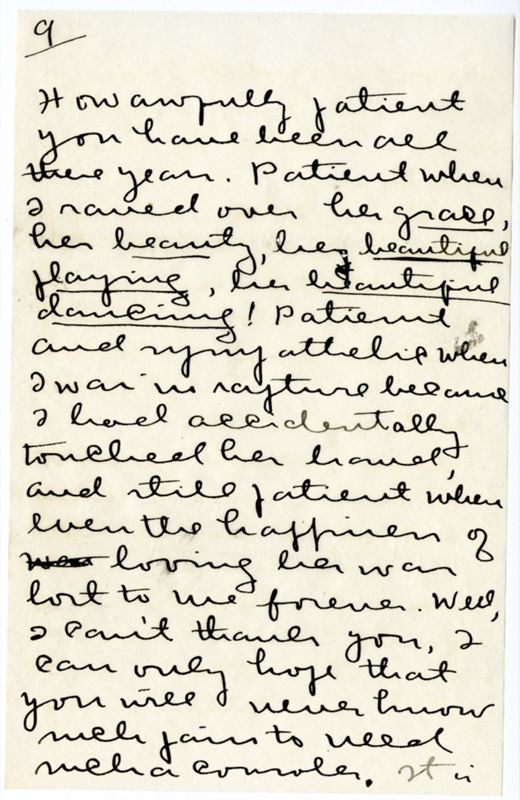 9
How awfully patient
you have been all
these years. Patient when
I raved over her grace,
her beauty, her beautiful
playing, her beautiful
dancing! Patient
and sympathetic when
I was in rapture because
I had accidentally
touched her hand,
and still patient when
even the happiness of
was loving her was
lost to me forever. Well,
I can't thank you, I
can only hope that
you will never know
such pain to need
such a consoler. It is